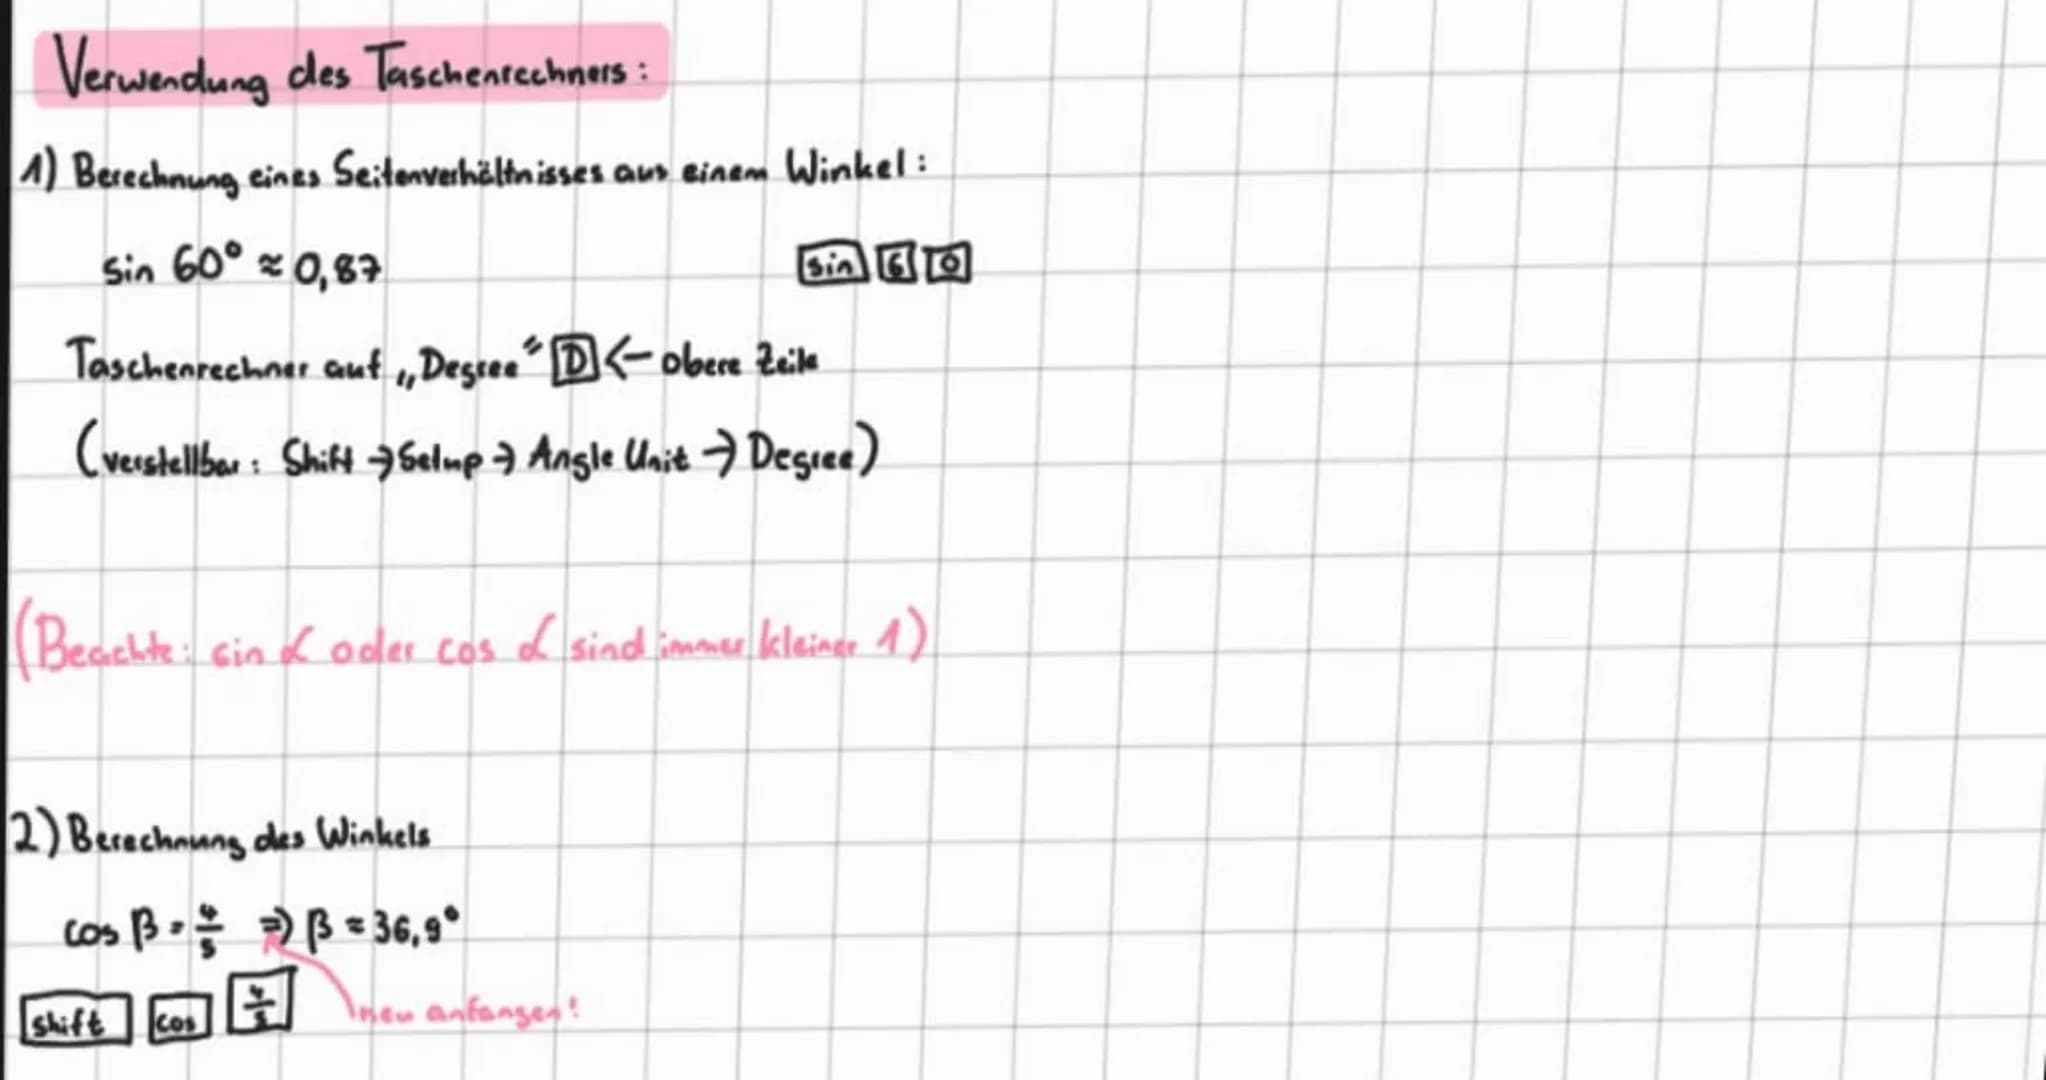 Verwendung des Taschenrechners:
1) Berechnung eines Seitenverhältnisses aus einem Winkel:
sin 60° ≈ 0,87 sin 6 0
Taschenrechner auf „Degree“ D ← obere Zeile
(verstellbar: Shift → Setup → Angle Unit → Degree)
(Beachte: sin α oder cos α sind immer kleiner 1)
2) Berechnung des Winkels
cos β = 4/5 ⇒ β ≈ 36,9°
shift cos 4/5 neu anfangen!